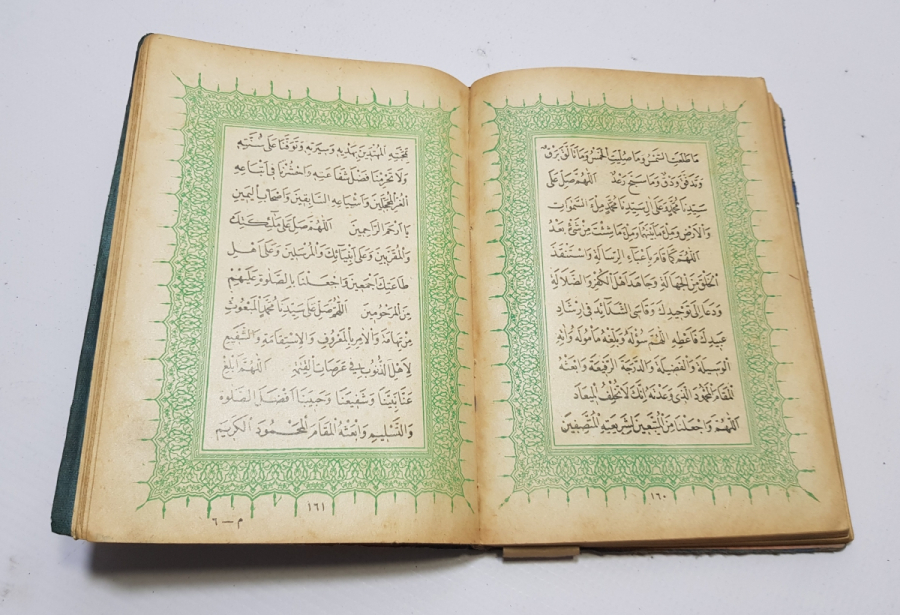 مَا طَلَعَتِ الشَّمْسُ وَمَا صُلِّيَتِ الْخَمْسُ وَمَا تَأَلَّقَ بَرْقٌ
وَتَدَفَّقَ وَدْقٌ وَمَا سَبَّحَ رَعْدٌ اَللّٰهُمَّ صَلِّ عَلٰى
سَيِّدِنَا مُحَمَّدٍ وَعَلٰى اٰلِ سَيِّدِنَا مُحَمَّدٍ مِلْءَ السَّمٰوَاتِ
وَالْاَرْضِ وَمِلْءَ مَا بَيْنَهُمَا وَمِلْءَ مَا شِئْتَ مِنْ شَيْءٍ بَعْدُ
اَللّٰهُمَّ كَمَا قَامَ بِاَعْبَاءِ الرِّسَالَةِ وَاسْتَنْقَذَ
الْخَلْقَ مِنَ الْجَهَالَةِ وَجَاهَدَ اَهْلَ الْكُفْرِ وَالضَّلَالَةِ
وَدَعَا اِلٰى تَوْحِيدِكَ وَقَاسَى الشَّدَائِدَ فِي اِرْشَادِ
عَبِيدِكَ فَاَعْطِهِ اللّٰهُمَّ سُؤْلَهُ وَبَلِّغْهُ مَاْمُولَهُ وَاٰتِهِ
الْوَسِيلَةَ وَالْفَضِيلَةَ وَالدَّرَجَةَ الرَّفِيعَةَ وَابْعَثْهُ
الْمَقَامَ الْمَحْمُودَ الَّذِي وَعَدْتَهُ اِنَّكَ لَا تُخْلِفُ الْمِيعَادَ
اَللّٰهُمَّ وَاجْعَلْنَا مِنَ الْمُتَّبِعِينَ لِشَرِيعَتِهِ الْمُتَّصِفِينَ
١٦٠
بِمَحَبَّتِهِ الْمُهْتَدِينَ بِهَدْيِهِ وَسِيرَتِهِ وَتَوَفَّنَا عَلٰى سُنَّتِهِ
وَلَا تَحْرِمْنَا فَضْلَ شَفَاعَتِهِ وَاحْشُرْنَا فِي اَتْبَاعِهِ
الْغُرِّ الْمُحَجَّلِينَ وَاَشْيَاعِهِ السَّابِقِينَ وَاَصْحَابِ الْيَمِينِ
يَا اَرْحَمَ الرَّاحِمِينَ اَللّٰهُمَّ صَلِّ عَلٰى مَلٰئِكَتِكَ
وَالْمُقَرَّبِينَ وَعَلٰى اَنْبِيَائِكَ وَالْمُرْسَلِينَ وَعَلٰى اَهْلِ
طَاعَتِكَ اَجْمَعِينَ وَاجْعَلْنَا بِالصَّلٰوةِ عَلَيْهِمْ
مِنَ الْمَرْحُومِينَ اَللّٰهُمَّ صَلِّ عَلٰى سَيِّدِنَا مُحَمَّدٍ الْمَبْعُوثِ
مِنْ تِهَامَةَ وَالْاٰمِرِ بِالْمَعْرُوفِ وَالْاِسْتِقَامَةِ وَالشَّفِيعِ
لِاَهْلِ الذُّنُوبِ فِي عَرَصَاتِ الْقِيٰمَةِ اَللّٰهُمَّ اَبْلِغْ
عَنَّا نَبِيَّنَا وَشَفِيعَنَا وَحَبِيبَنَا اَفْضَلَ الصَّلٰوةِ
وَالتَّسْلِيمِ وَابْعَثْهُ الْمَقَامَ الْمَحْمُودَ الْكَرِيمَ
١٦١
م — ٦